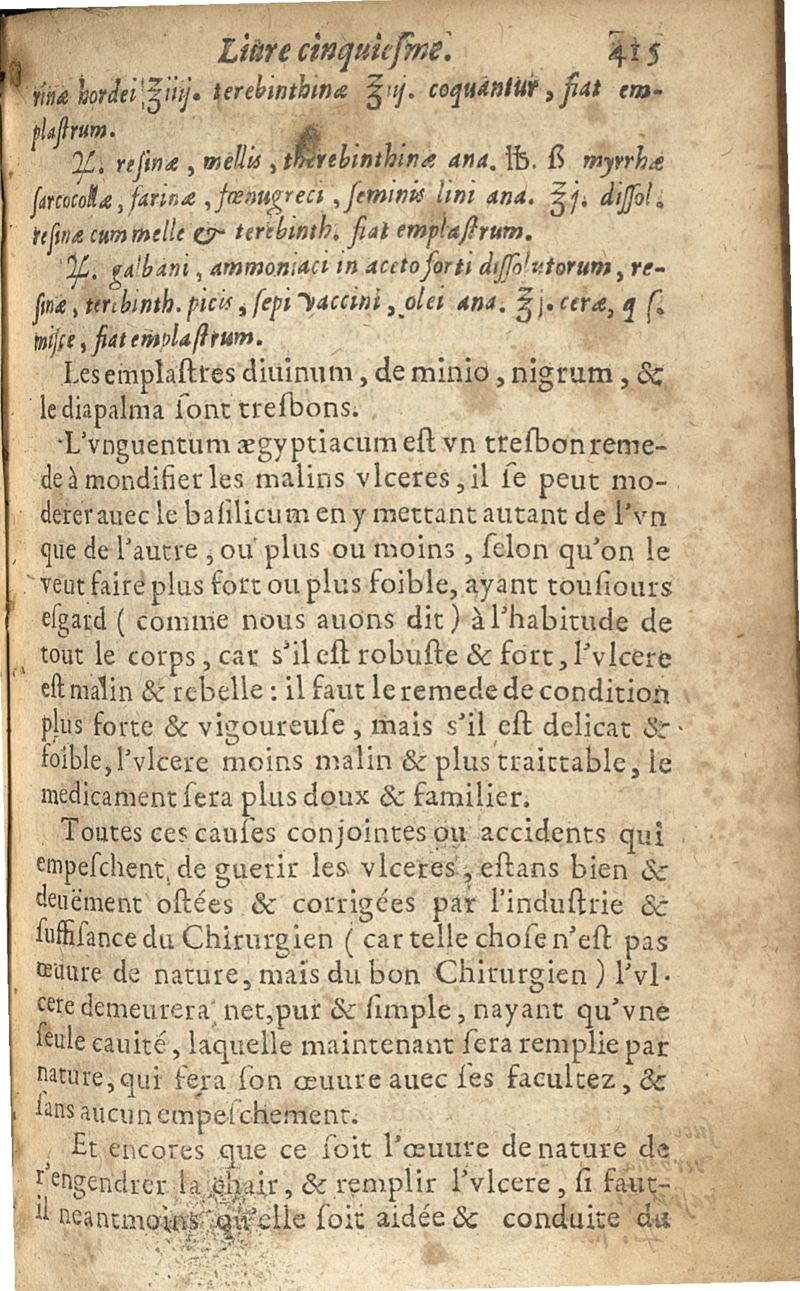 Liure cinquiesme. 415
rinæ hordei ℥iiij. terebinthinæ ℥iij. coquantur, fiat em-
plastrum.
℞. resinæ, mellis, therebinthinæ ana. ℔. ß myrrhæ
sarcocollæ, farinæ, fœnugreci, seminis lini ana. ℥j. dissol.
resinæ cum melle & terebinth. fiat emplastrum.
℞. galbani, ammoniaci in aceto forti dissolutorum, re-
sinæ, terebinth. picis, sepi vaccini, olei ana. ℥j. ceræ, q ſ.
misce, fiat emplastrum.
Les emplastres diuinum, de minio, nigrum, &
le diapalma ſont tresbons.
L'vnguentum ægyptiacum est vn tresbon reme-
de à mondifier les malins vlceres, il ſe peut mo-
derer auec le baſilicum en y mettant autant de l'vn
que de l'autre, ou plus ou moins, ſelon qu'on le
veut faire plus fort ou plus foible, ayant touſiours
eſgard ( comme nous auons dit ) à l'habitude de
tout le corps, car s'il eſt robuſte & fort, l'vlcere
eſt malin & rebelle : il faut le remede de condition
plus forte & vigoureuſe, mais s'il eſt delicat &
foible, l'vlcere moins malin & plus traittable, le
medicament ſera plus doux & familier.
Toutes ces cauſes conjointes ou accidents qui
empeſchent, de guerir les vlceres, eſtans bien &
deuëment oſtées & corrigées par l'induſtrie &
ſuffiſance du Chirurgien ( car telle choſe n'eſt pas
œuure de nature, mais du bon Chirurgien ) l'vl-
cere demeurera net, pur & ſimple, nayant qu'vne
ſeule cauité, laquelle maintenant ſera remplie par
nature, qui fera ſon œuure auec ſes facultez, &
ſans aucun empeſchement.
Et encores que ce ſoit l'œuure de nature de
r'engendrer la chair, & remplir l'vlcere, ſi faut-
il neantmoins qu'elle ſoit aidée & conduite du